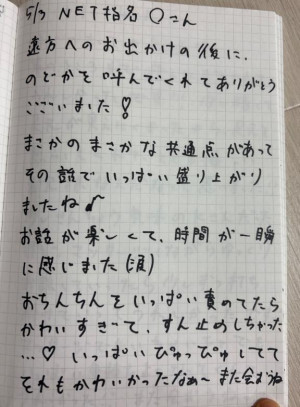 5/3 NET指名 〇さん
遠方へのお出かけの後に、
のどかを呼んでくれてありがとう
ございました!
まさかのまさかな共通点があって
その話でいっぱい盛り上がり
ましたね♪
お話が楽しくて、時間が一瞬
に感じました(涙)
おちんちんをいっぱい責めてたら
かわいすぎて、すん止めしちゃった
…♡ いっぱいぴゅっぴゅしてて
それもかわいかったなぁ〜 また会おうね